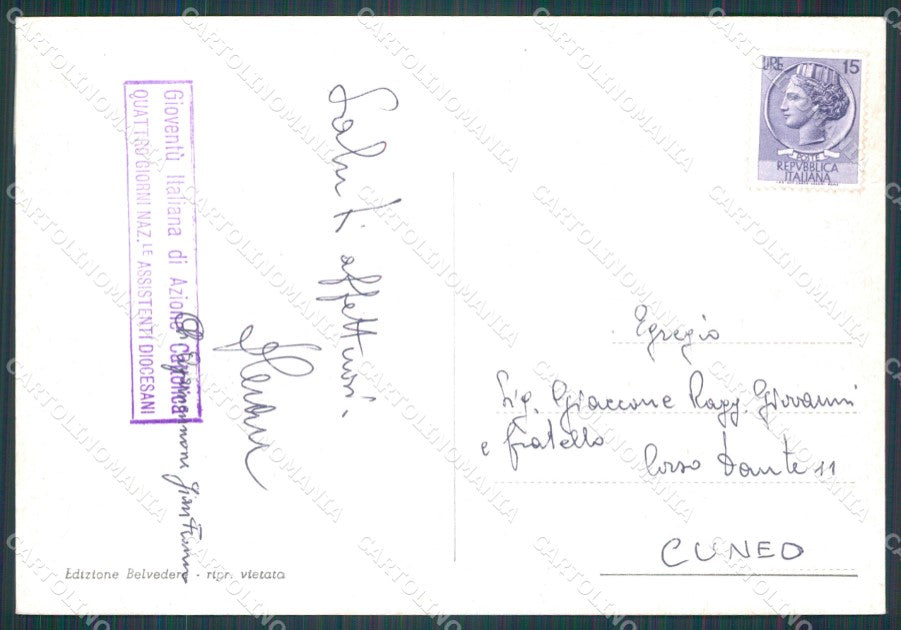 Gioventù Italiana di Azione Cattolica
QUATTRO GIORNI NAZ.LE ASSISTENTI DIOCESANI
Saluti affettuosi.
Edizione Belvedere - ripr. vietata
LIRE 15
POSTE
REPVBBLICA
ITALIANA
Egregio
Sig. Giaccone Ragg. Giovanni
e fratello
Corso Dante 11
CUNEO
CARTOLINOMANIA